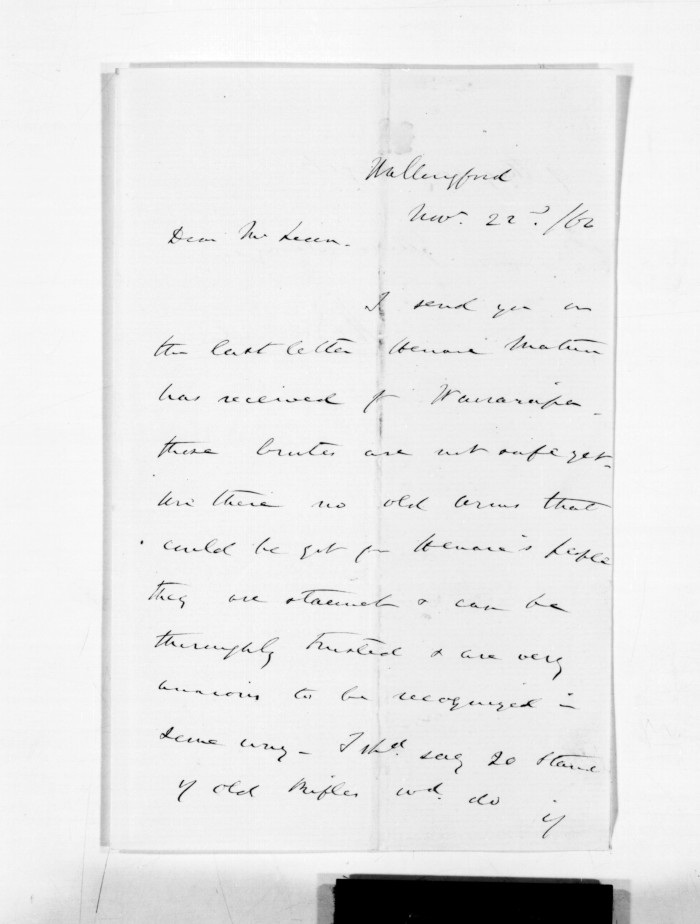 Wallingford
Nov. 22d. /62
Dear McLean.
I send you on
the last letter Henare Matua
has received fr Wairarapa -
those brutes are not safe yet -
are there no old arms that
could be got for Henare's people
they are staunch & can be
thoroughly trusted & are very
anxious to be recognized in
some way - I shd. say 20 stand
of old Rifles wd. do if